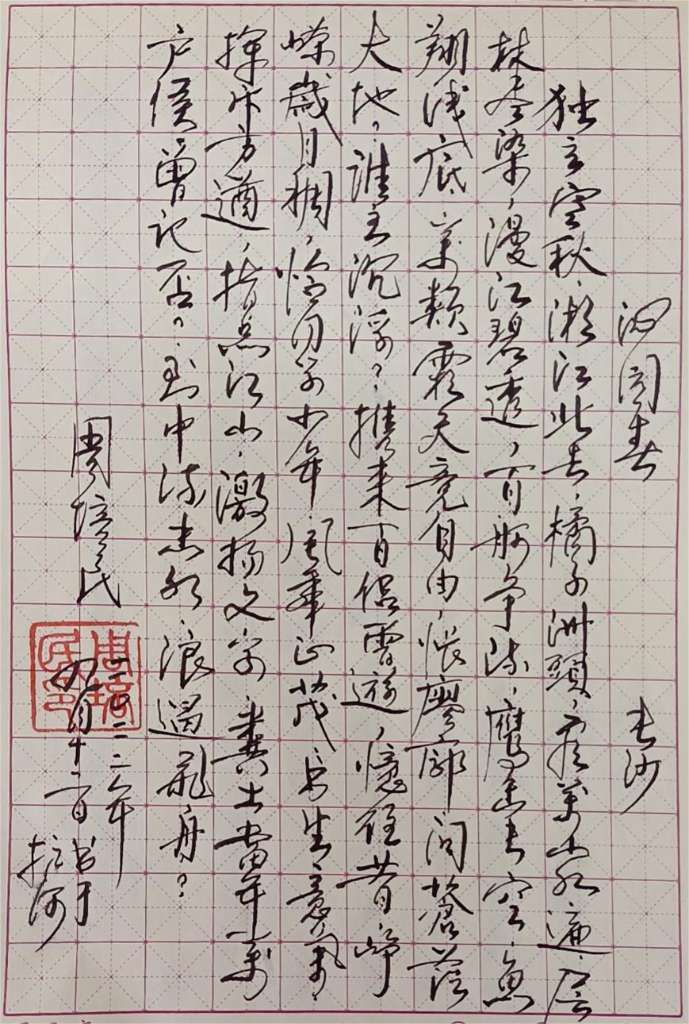 沁园春 长沙
独立寒秋,湘江北去,橘子洲頭,看萬山红遍,层
林尽染,漫江碧透,百舸争流,鹰击长空,鱼
翔浅底,萬類霜天竞自由,怅寥廓,问蒼茫
大地?谁主沉浮?携来百侣曾遊,憶往昔峥
嵘歲月稠,恰同学少年,风華正茂,书生意氣,
挥斥方遒,指点江山,激扬文字,粪土當年萬
户侯。曾记否?到中流击水,浪遏飛舟?
周培民
二〇二二年
四月十二日书于
周培民印